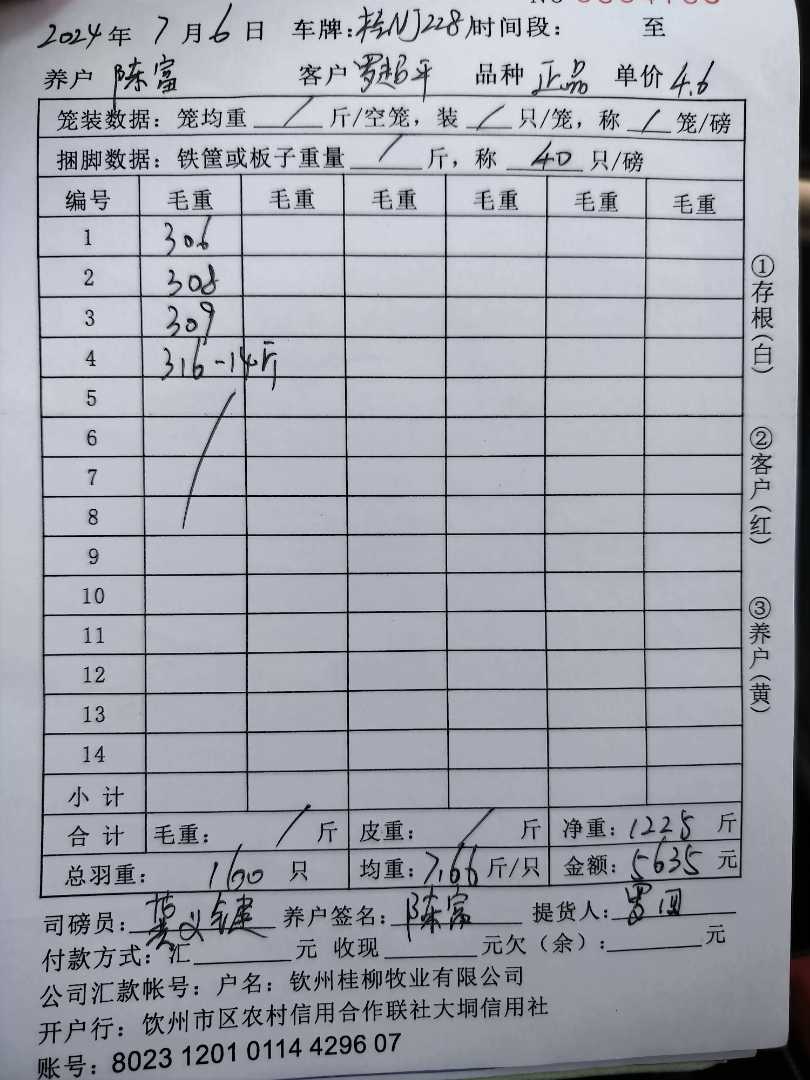 2024年 7月6日 车牌:桂NJ228 时间段: 至
养户 陈富 客户 罗超平 品种 正品 单价 4.6
笼装数据: 笼均重 / 斤/空笼, 装 / 只/笼, 称 / 笼/磅
捆脚数据: 铁筐或板子重量 / 斤, 称 40 只/磅
编号 毛重 毛重 毛重 毛重 毛重 毛重
1 306
2 308
3 309
4 316-14斤
5
6
7
8
9
10
11
12
13
14
小计
合计 毛重: / 斤 皮重: / 斤 净重: 1225 斤
总羽重: 160 只 均重: 7.66 斤/只 金额: 5635 元
司磅员: 养户签名: 陈富 提货人:
付款方式: 汇 元 收现 元欠(余): 元
公司汇款帐号: 户名: 钦州桂柳牧业有限公司
开户行: 钦州市区农村信用合作联社大垌信用社
账号: 8023 1201 0114 4296 07
①存根(白)
②客户(红)
③养户(黄)